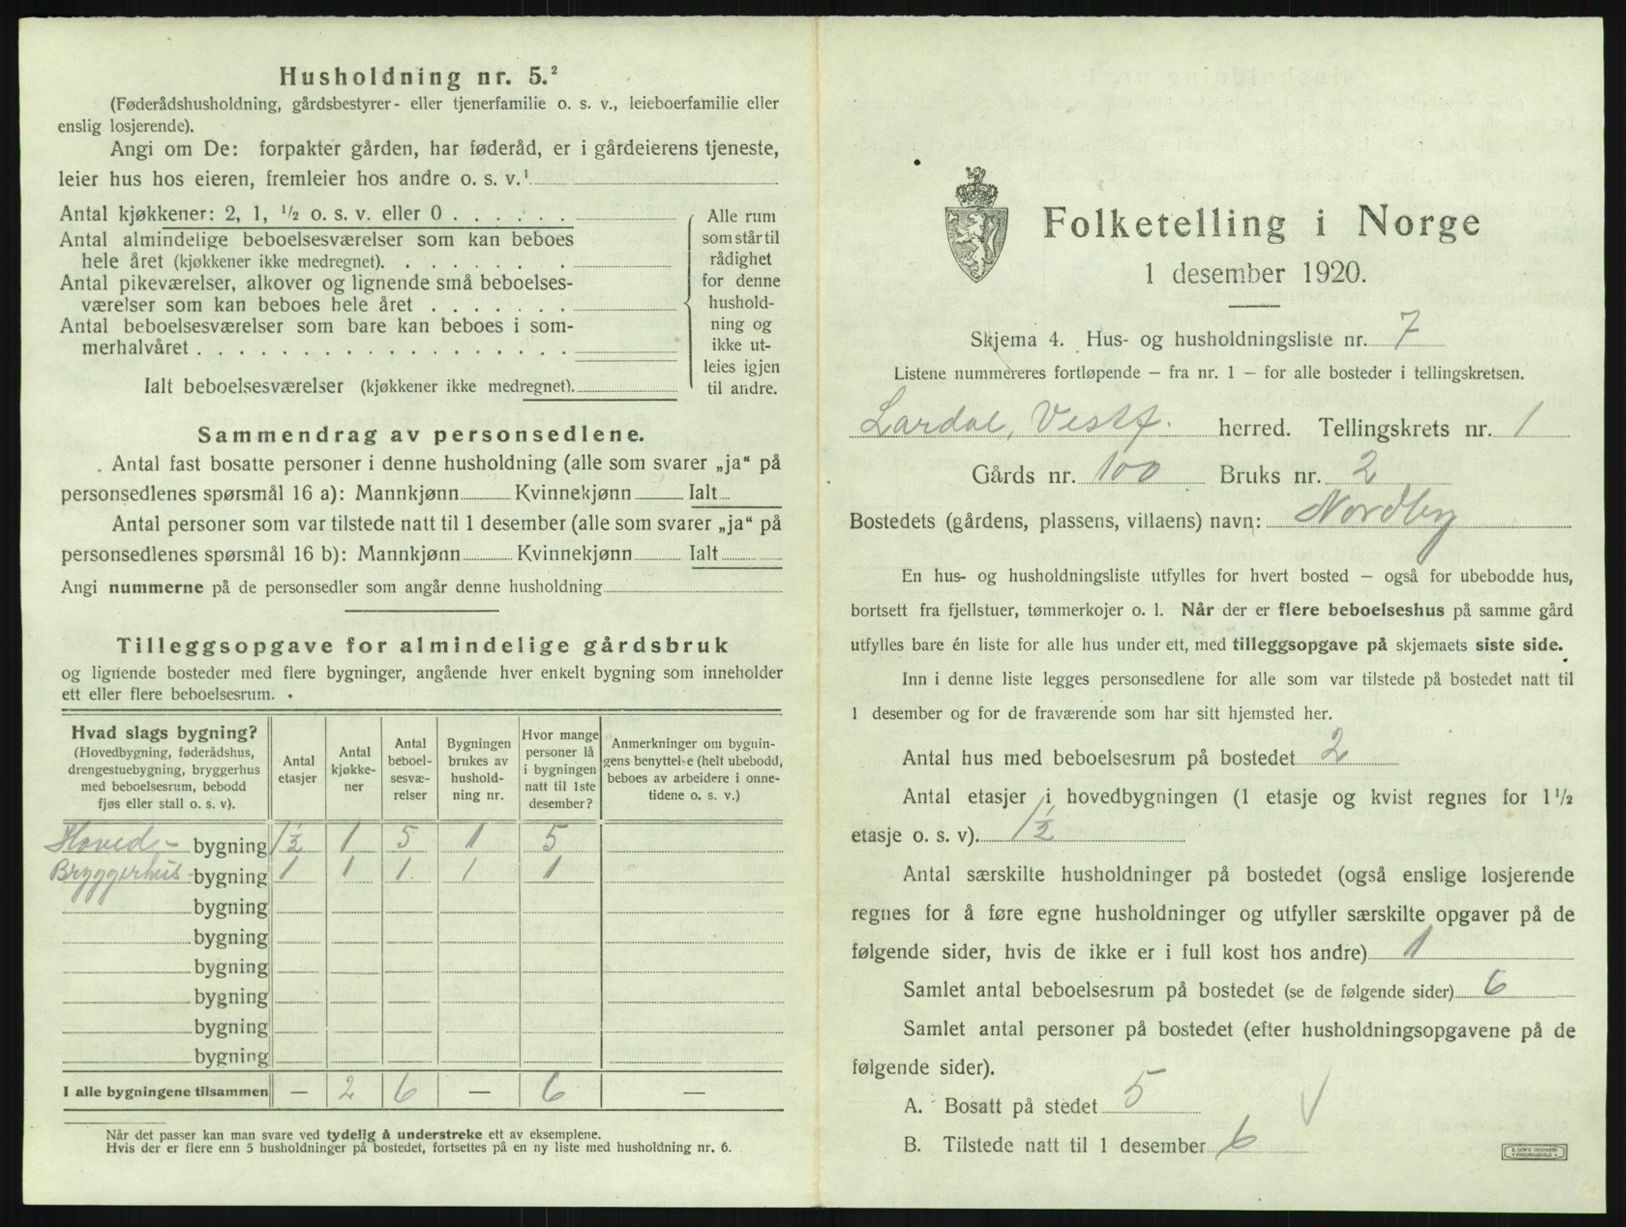 Husholdning nr. 5.²
(Føderådshusholdning, gårdsbestyrer- eller tjenerfamilie o. s. v., leieboerfamilie eller
enslig losjerende).
Angi om De: forpakter gården, har føderåd, er i gårdeierens tjeneste,
leier hus hos eieren, fremleier hos andre o. s. v.¹
Antal kjøkkener: 2, 1, ½ o. s. v. eller 0 . . . . . .
Antal almindelige beboelsesværelser som kan beboes
hele året (kjøkkener ikke medregnet). . . . . . . .
Antal pikeværelser, alkover og lignende små beboelses-
værelser som kan beboes hele året . . . . . . .
Antal beboelsesværelser som bare kan beboes i som-
merhalvåret . . . . . . . . . . . . . . . . .
Ialt beboelsesværelser (kjøkkener ikke medregnet).
Alle rum
som står til
rådighet
for denne
hushold-
ning og
ikke ut-
leies igjen
til andre.
Sammendrag av personsedlene.
Antal fast bosatte personer i denne husholdning (alle som svarer „ja“ på
personsedlenes spørsmål 16 a): Mannkjønn Kvinnekjønn Ialt
Antal personer som var tilstede natt til 1 desember (alle som svarer „ja“ på
personsedlenes spørsmål 16 b): Mannkjønn Kvinnekjønn Ialt
Angi nummerne på de personsedler som angår denne husholdning
Tilleggsopgave for almindelige gårdsbruk
og lignende bosteder med flere bygninger, angående hver enkelt bygning som inneholder
ett eller flere beboelsesrum.
Hvad slags bygning?
(Hovedbygning, føderådshus,
drengestuebygning, bryggerhus
med beboelsesrum, bebodd
fjøs eller stall o. s. v).
Antal
etasjer
Antal
kjøkke-
ner
Antal
beboel-
sesvæ-
relser
Bygningen
brukes av
hushold-
ning nr.
Hvor mange
personer lå
i bygningen
natt til 1ste
desember?
Anmerkninger om bygnin-
gens benyttelse (helt ubebodd,
beboes av arbeidere i onne-
tidene o. s. v.)
Hoved- bygning 1½ 1 5 1 5
Bryggerhus- bygning 1 1 1 1 1
bygning
bygning
bygning
bygning
bygning
bygning
I alle bygningene tilsammen — 2 6 — 6 —
Når det passer kan man svare ved tydelig å understreke ett av eksemplene.
Hvis der er flere enn 5 husholdninger på bostedet, fortsettes på en ny liste med husholdning nr. 6.
Folketelling i Norge
1 desember 1920.
Skjema 4. Hus- og husholdningsliste nr. 7
Listene nummereres fortløpende — fra nr. 1 — for alle bosteder i tellingskretsen.
Lardal, Vestf. herred. Tellingskrets nr. 1
Gårds nr. 100 Bruks nr. 2
Bostedets (gårdens, plassens, villaens) navn: Nordby
En hus- og husholdningsliste utfylles for hvert bosted — også for ubebodde hus,
bortsett fra fjellstuer, tømmerkojer o. l. Når der er flere beboelseshus på samme gård
utfylles bare én liste for alle hus under ett, med tilleggsopgave på skjemaets siste side.
Inn i denne liste legges personsedlene for alle som var tilstede på bostedet natt til
1 desember og for de fraværende som har sitt hjemsted her.
Antal hus med beboelsesrum på bostedet 2
Antal etasjer i hovedbygningen (1 etasje og kvist regnes for 1½
etasje o. s. v). 1½
Antal særskilte husholdninger på bostedet (også enslige losjerende
regnes for å føre egne husholdninger og utfyller særskilte opgaver på de
følgende sider, hvis de ikke er i full kost hos andre) 1
Samlet antal beboelsesrum på bostedet (se de følgende sider) 6
Samlet antal personer på bostedet (efter husholdningsopgavene på de
følgende sider).
A. Bosatt på stedet 5
B. Tilstede natt til 1 desember 6